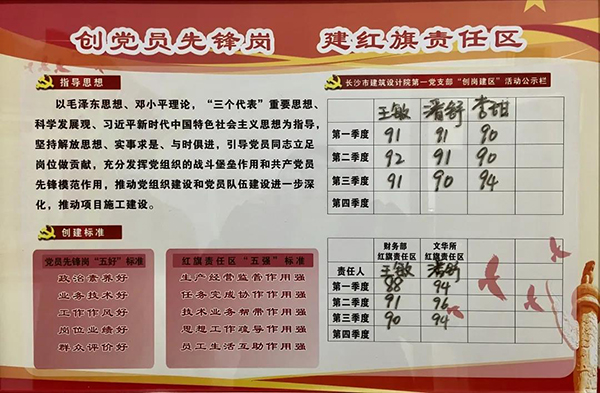 创党员先锋岗 建红旗责任区
指导思想
以毛泽东思想、邓小平理论，“三个代表”重要思想、
科学发展观、习近平新时代中国特色社会主义思想为指导，
坚持解放思想、实事求是、与时俱进，引导党员同志立足
岗位做贡献，充分发挥党组织的战斗堡垒作用和共产党员
先锋模范作用，推动党组织建设和党员队伍建设进一步深
化，推动项目施工建设。
创建标准
党员先锋岗“五好”标准
政治素养好
业务技术好
工作作风好
岗位业绩好
群众评价好
红旗责任区“五强”标准
生产经营监管作用强
任务完成协作作用强
技术业务帮带作用强
思想工作疏导作用强
员工生活互助作用强
长沙市建筑设计院第一党支部“创岗建区”活动公示栏
王敏 潘舒 李甜
第一季度 91 91 90
第二季度 92 91 90
第三季度 91 90 94
第四季度
财务部 文华所
红旗责任区 红旗责任区
责任人 王敏 潘舒
第一季度 88 94
第二季度 91 96
第三季度 90 94
第四季度